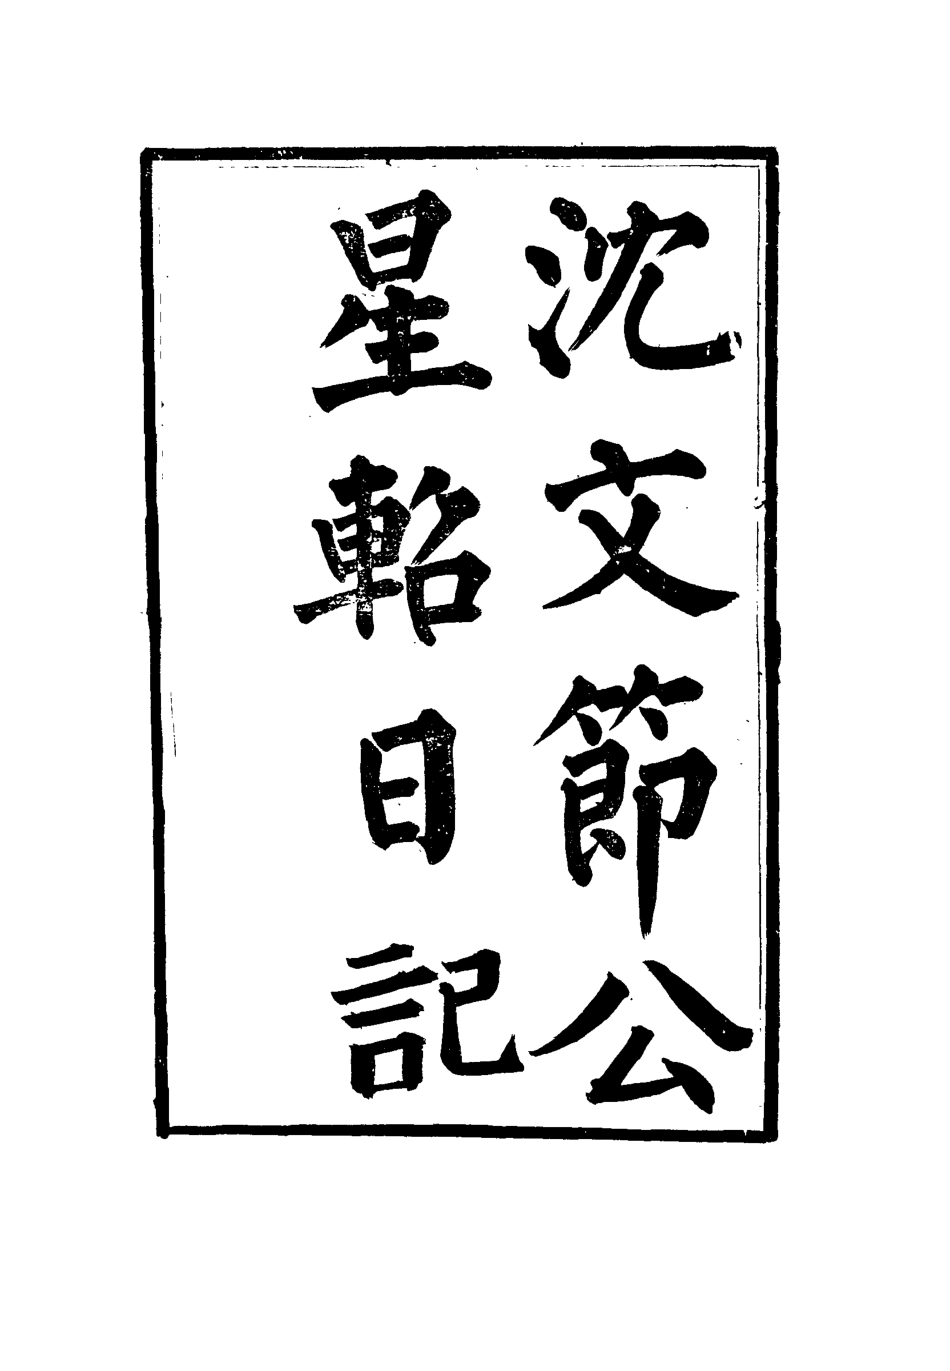 沈文節公
星軺日記